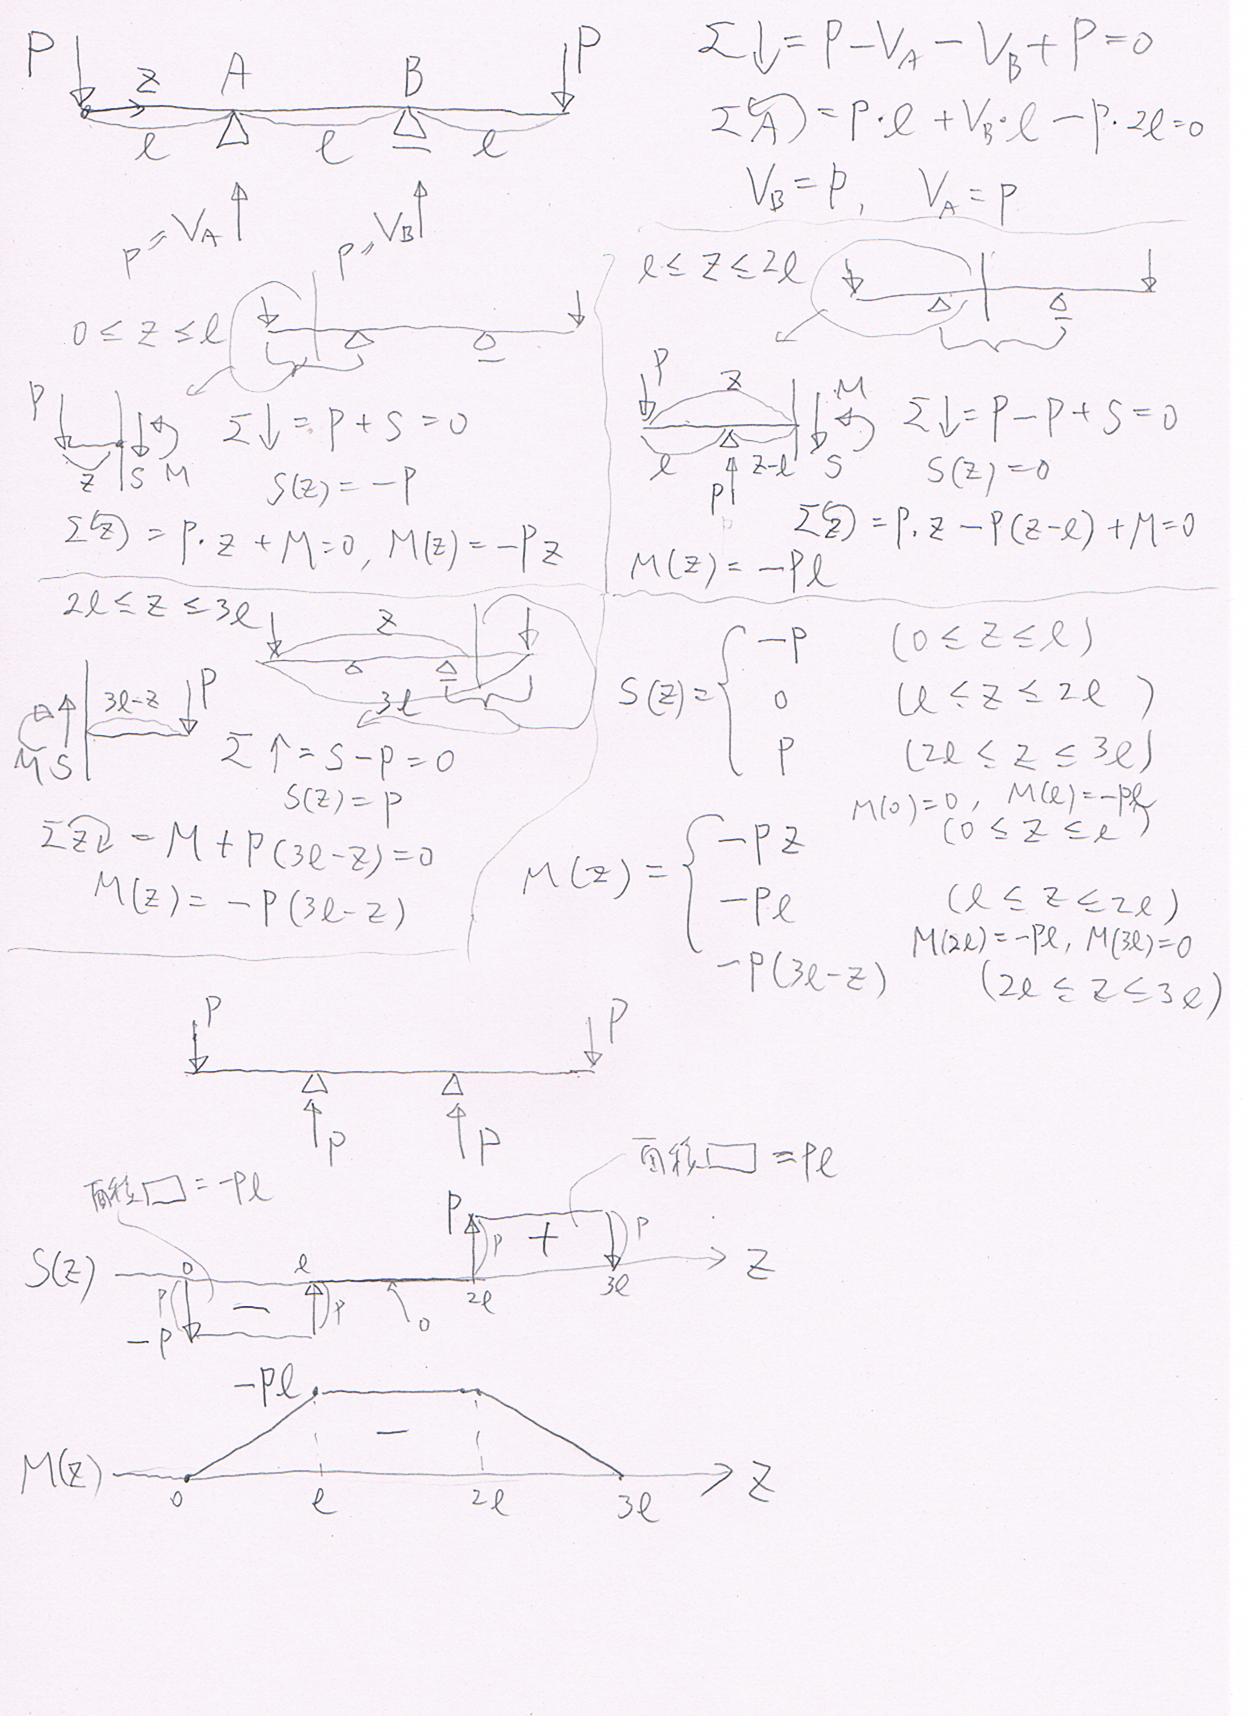 P P
z A B
ℓ ℓ ℓ
P=V_A P=V_B
Σ↓=P-V_A-V_B+P=0
Σ(A)=P·ℓ+V_B·ℓ-P·2ℓ=0
V_B=P, V_A=P
0≤z≤ℓ
P
z S M
Σ↓=P+S=0
S(z)=-P
Σ(z)=P·z+M=0, M(z)=-Pz
ℓ≤z≤2ℓ
P z M
ℓ z-ℓ S
P
Σ↓=P-P+S=0
S(z)=0
Σ(z)=P·z-P(z-ℓ)+M=0
M(z)=-Pℓ
2ℓ≤z≤3ℓ
z
3ℓ
3ℓ-z P
M S
Σ↑=S-P=0
S(z)=P
Σz=M+P(3ℓ-z)=0
M(z)=-P(3ℓ-z)
S(z)={ -P (0≤z≤ℓ)
0 (ℓ≤z≤2ℓ)
P (2ℓ≤z≤3ℓ)
M(0)=0, M(ℓ)=-Pℓ
M(z)={ -Pz (0≤z≤ℓ)
-Pℓ (ℓ≤z≤2ℓ)
M(2ℓ)=-Pℓ, M(3ℓ)=0
-P(3ℓ-z) (2ℓ≤z≤3ℓ)
P P
P P
面積□=-Pℓ
面積□=Pℓ
P P + P
S(z) 0 ℓ 2ℓ 3ℓ z
P - P 0
-P
-Pℓ
-
M(z) 0 ℓ 2ℓ 3ℓ z